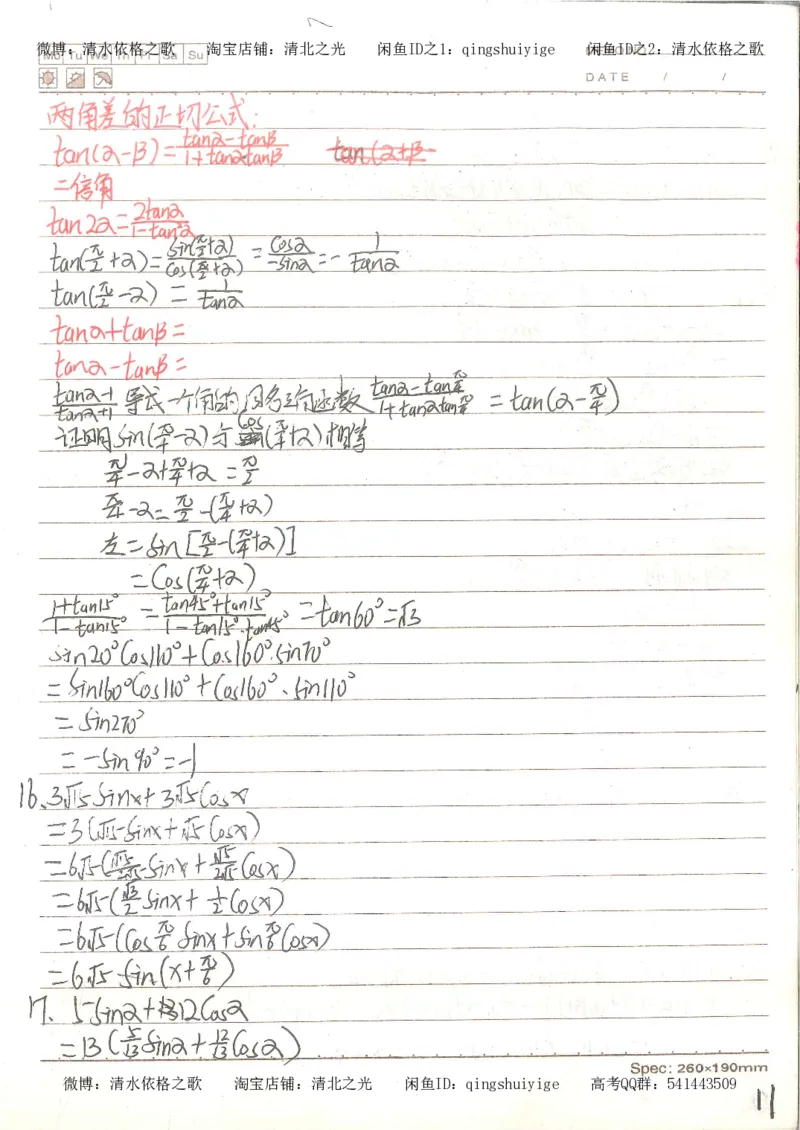 微博：清水依格之歌 淘宝店铺：清北之光 闲鱼ID之1：qingshuiyige 闲鱼ID之2：清水依格之歌
Mo Tu We Th Fr Sa Su
DATE / /
两角差的正切公式：
tan(α-β)=(tanα-tanβ)/(1+tanαtanβ) tan(α+β
二倍角
tan2α=2tanα/(1-tan²α)
tan(π/2+α)=sin(π/2+α)/cos(π/2+α)=cosα/-sinα=-1/tanα
tan(π/2-α)=1/tanα
tanα+tanβ=
tanα-tanβ=
(tanα-1)/(tanα+1) 等式一个角的同名三角函数 (tanα-tanπ/4)/(1+tanαtanπ/4)=tan(α-π/4)
证明sin(π/4-α)与cos(π/4+α)相等
π/4-α+π/4+α=π/2
π/4-α=π/2-(π/4+α)
左=sin[π/2-(π/4+α)]
=cos(π/4+α)
(1+tan15°)/(1-tan15°)=(tan45°+tan15°)/(1-tan15°·tan45°)=tan60°=√3
sin20°cos110°+cos160°·sin70°
=sin160°cos110°+cos160°·sin110°
=sin270°
=-sin90°=-1
16、3√15sinx+3√5cosx
=3(√15sinx+√5cosx)
=6√5(√15/2√5 sinx+√5/2√5 cosx)
=6√5(√3/2 sinx+1/2 cosx)
=6√5(cosπ/6 sinx+sinπ/6 cosx)
=6√5sin(x+π/6)
17、5sinα+12cosα
=13(5/13 sinα+12/13 cosα)
Spec: 260×190mm
微博：清水依格之歌 淘宝店铺：清北之光 闲鱼ID：qingshuiyige 高考QQ群：541443509
11